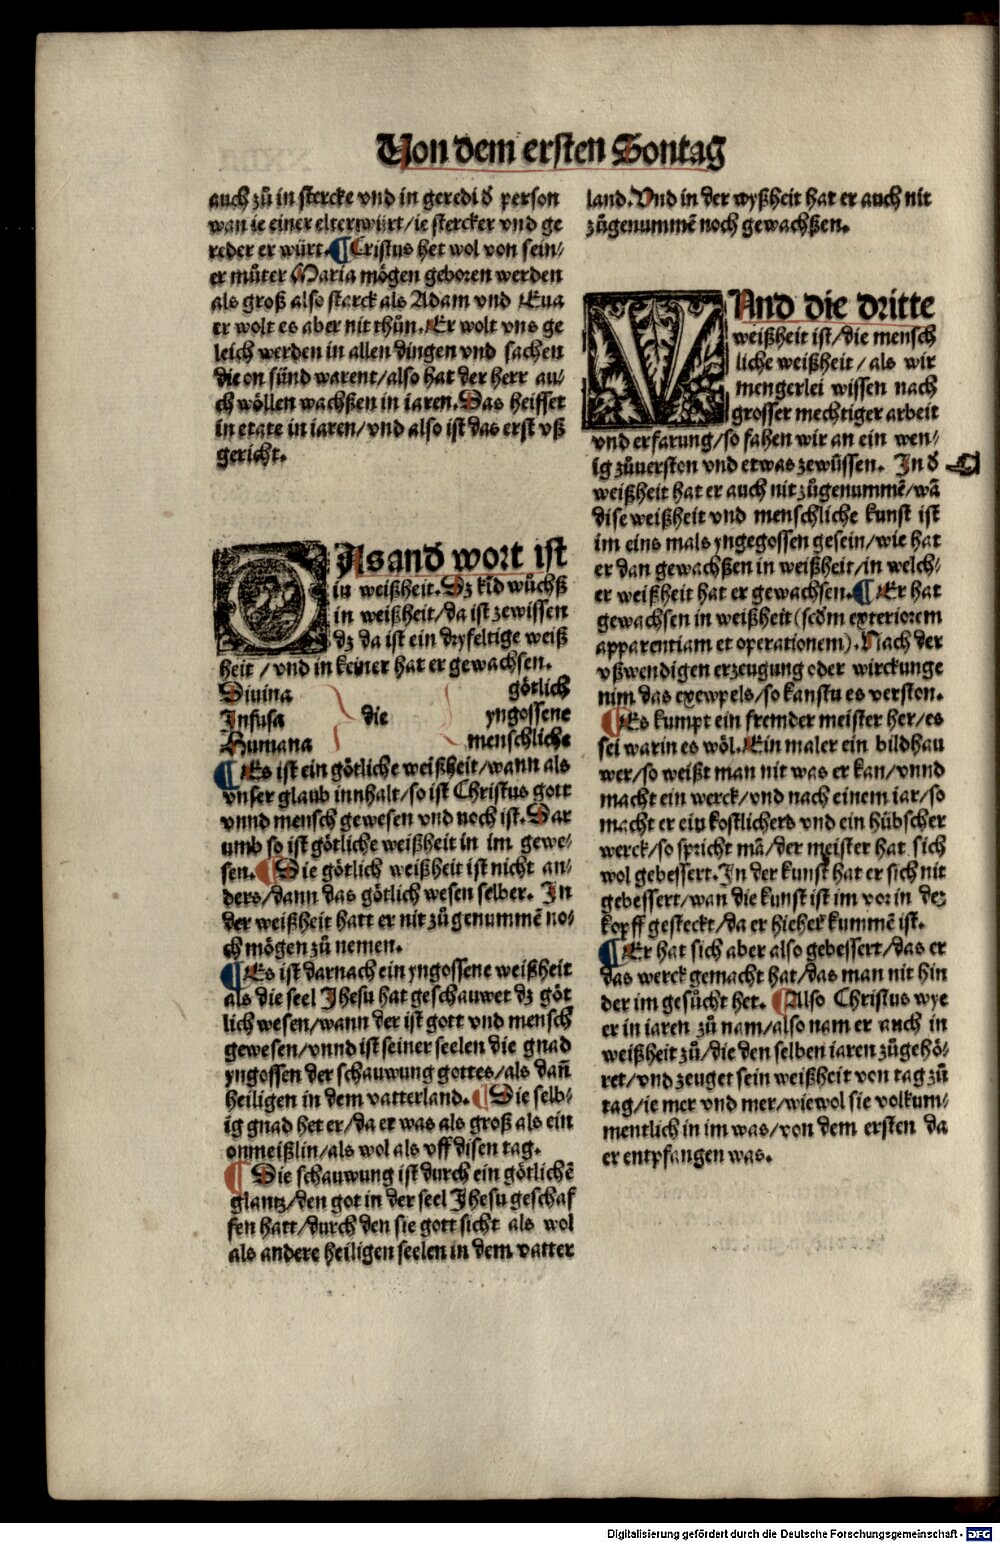 Von dem ersten Sontag
auch zů in stercke vnd in geredi d᷎ person
wan ie einer elter würt/ie stercker vnd ge
reder er würt. ¶ Cristus het wol von sein/
er můter Maria mögen geboren werden
als groß also starck als Adam vnd Eua
er wolt es aber nit thůn. Er wolt vns ge
leich werden in allen dingen vnd sachen
die on sünd warent/also hat der herr au/
ch wöllen wachßen in iaren. Das heisset
in etate in iaren/vnd also ist das erst vß
gericht.
DAs and᷎ wort ist
in weißheit. Dz kīd wůchß
in weißheit/da ist zewissen
dz da ist ein dryfeltige weiß
heit/vnd in keiner hat er gewachsen.
Diuina götlich
Infusa die yngossene
Humana menschliche
¶ Es ist ein götliche weißheit/wann als
vnser glaub innhalt/so ist Christus gott
vnnd mensch gewesen vnd noch ist. Dar
umb so ist götliche weißheit in im gewe/
sen. ¶ Die götlich weißheit ist nicht an/
ders/dann das götlich wesen selber. In
der weißheit hatt er nit zů genummē no/
ch mögen zů nemen.
¶ Es ist darnach ein yngossene weißheit
als die seel Jhesu hat geschauwet dz göt
lich wesen/wann der ist gott vnd mensch
gewesen/vnnd ist seiner seelen die gnad
yngossen der schauwung gottes/als dañ
heiligen in dem vatterland. ¶ Die selb/
ig gnad het er/da er was als groß als ein
onmeißlin/als wol als vff disen tag.
¶ Die schauwung ist durch ein götlichē
glantz/den got in der seel Jhesu geschaf
fen hatt/durch den sie gott sicht als wol
als andere heiligen seelen in dem vatter
land. Vnd in der wyßheit hat er auch nit
zůgenummē noch gewachßen.
VNnd die dritte
weißheit ist/die mensch
liche weißheit/als wir
mengerlei wissen nach
grosser mechtiger arbeit
vnd erfarung/so fahen wir an ein wen/
ig zůuerston vnd etwas zewüssen. In d᷎
weißheit hat er auch nit zůgenummē/wā
dise weißheit vnd menschliche kunst ist
im eins mals yngegossen gesein/wie hat
er dan gewachßen in weißheit/in welch/
er weißheit hat er gewachsen. ¶ Er hat
gewachsen in weißheit (scd᷎m exteriorem
apparentiam et operationem). Nach der
vßwendigen erzeugung oder wirckunge
nim das exewpels/so kanstu es verston.
¶ Es kumpt ein fremder meister her/es
sei warin es wöl. Ein maler ein bildhau
wer/so weißt man nit was er kan/vnnd
macht ein werck/vnd nach einem iar/so
macht er ein kostlichers vnd ein hübscher
werck/so spricht mā/der meister hat sich
wol gebessert. In der kunst hat er sich nit
gebessert/wan die kunst ist im vor in dez
kopff gesteckt/da er hieher kummē ist.
¶ Er hat sich aber also gebessert/das er
das werck gemacht hat/das man nit hin
der im gesůcht het. ¶ Also Christus wye
er in iaren zů nam/also nam er auch in
weißheit zů/die den selben iaren zůgehö/
ret/vnd zeuget sein weißheit von tag zů
tag/ie mer vnd mer/wiewol sie volkum/
mentlich in im was/von dem ersten da
er entpfangen was.
Digitalisierung gefördert durch die Deutsche Forschungsgemeinschaft - DFG